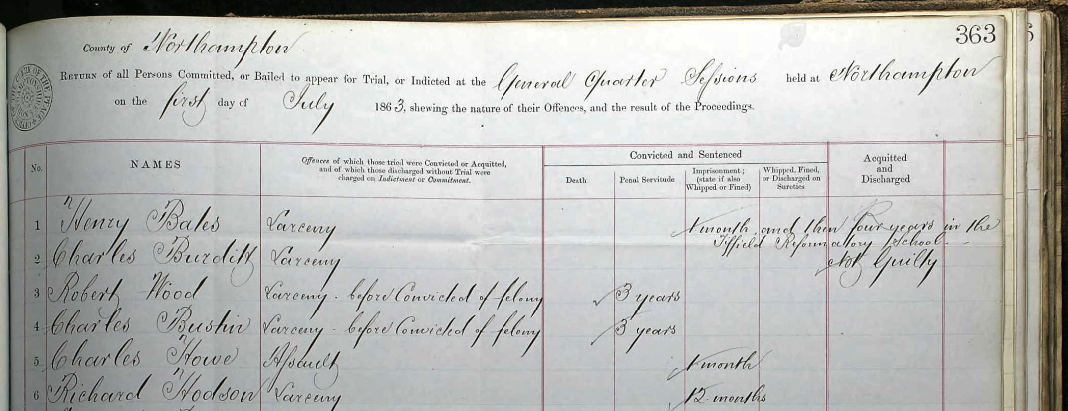 363
County of Northampton
RETURN of all Persons Committed, or Bailed to appear for Trial, or Indicted at the General Quarter Sessions held at Northampton
on the first day of July 1863, shewing the nature of their Offences, and the result of the Proceedings.
No. NAMES Offences of which those tried were Convicted or Acquitted, and of which those discharged without Trial were charged on Indictment or Commitment. Convicted and Sentenced Acquitted and Discharged
Death Penal Servitude Imprisonment; (state if also Whipped or Fined) Whipped, Fined, or Discharged on Sureties
1 Henry Bales Larceny 1 month and then four years in the
Iffield Reformatory School
2 Charles Burditt Larceny Not Guilty
3 Robert Wood Larceny - before Convicted of felony 3 years
4 Charles Bushin Larceny - before Convicted of felony 3 years
5 Charles Howe Assault 1 month
6 Richard Hodson Larceny 12 months